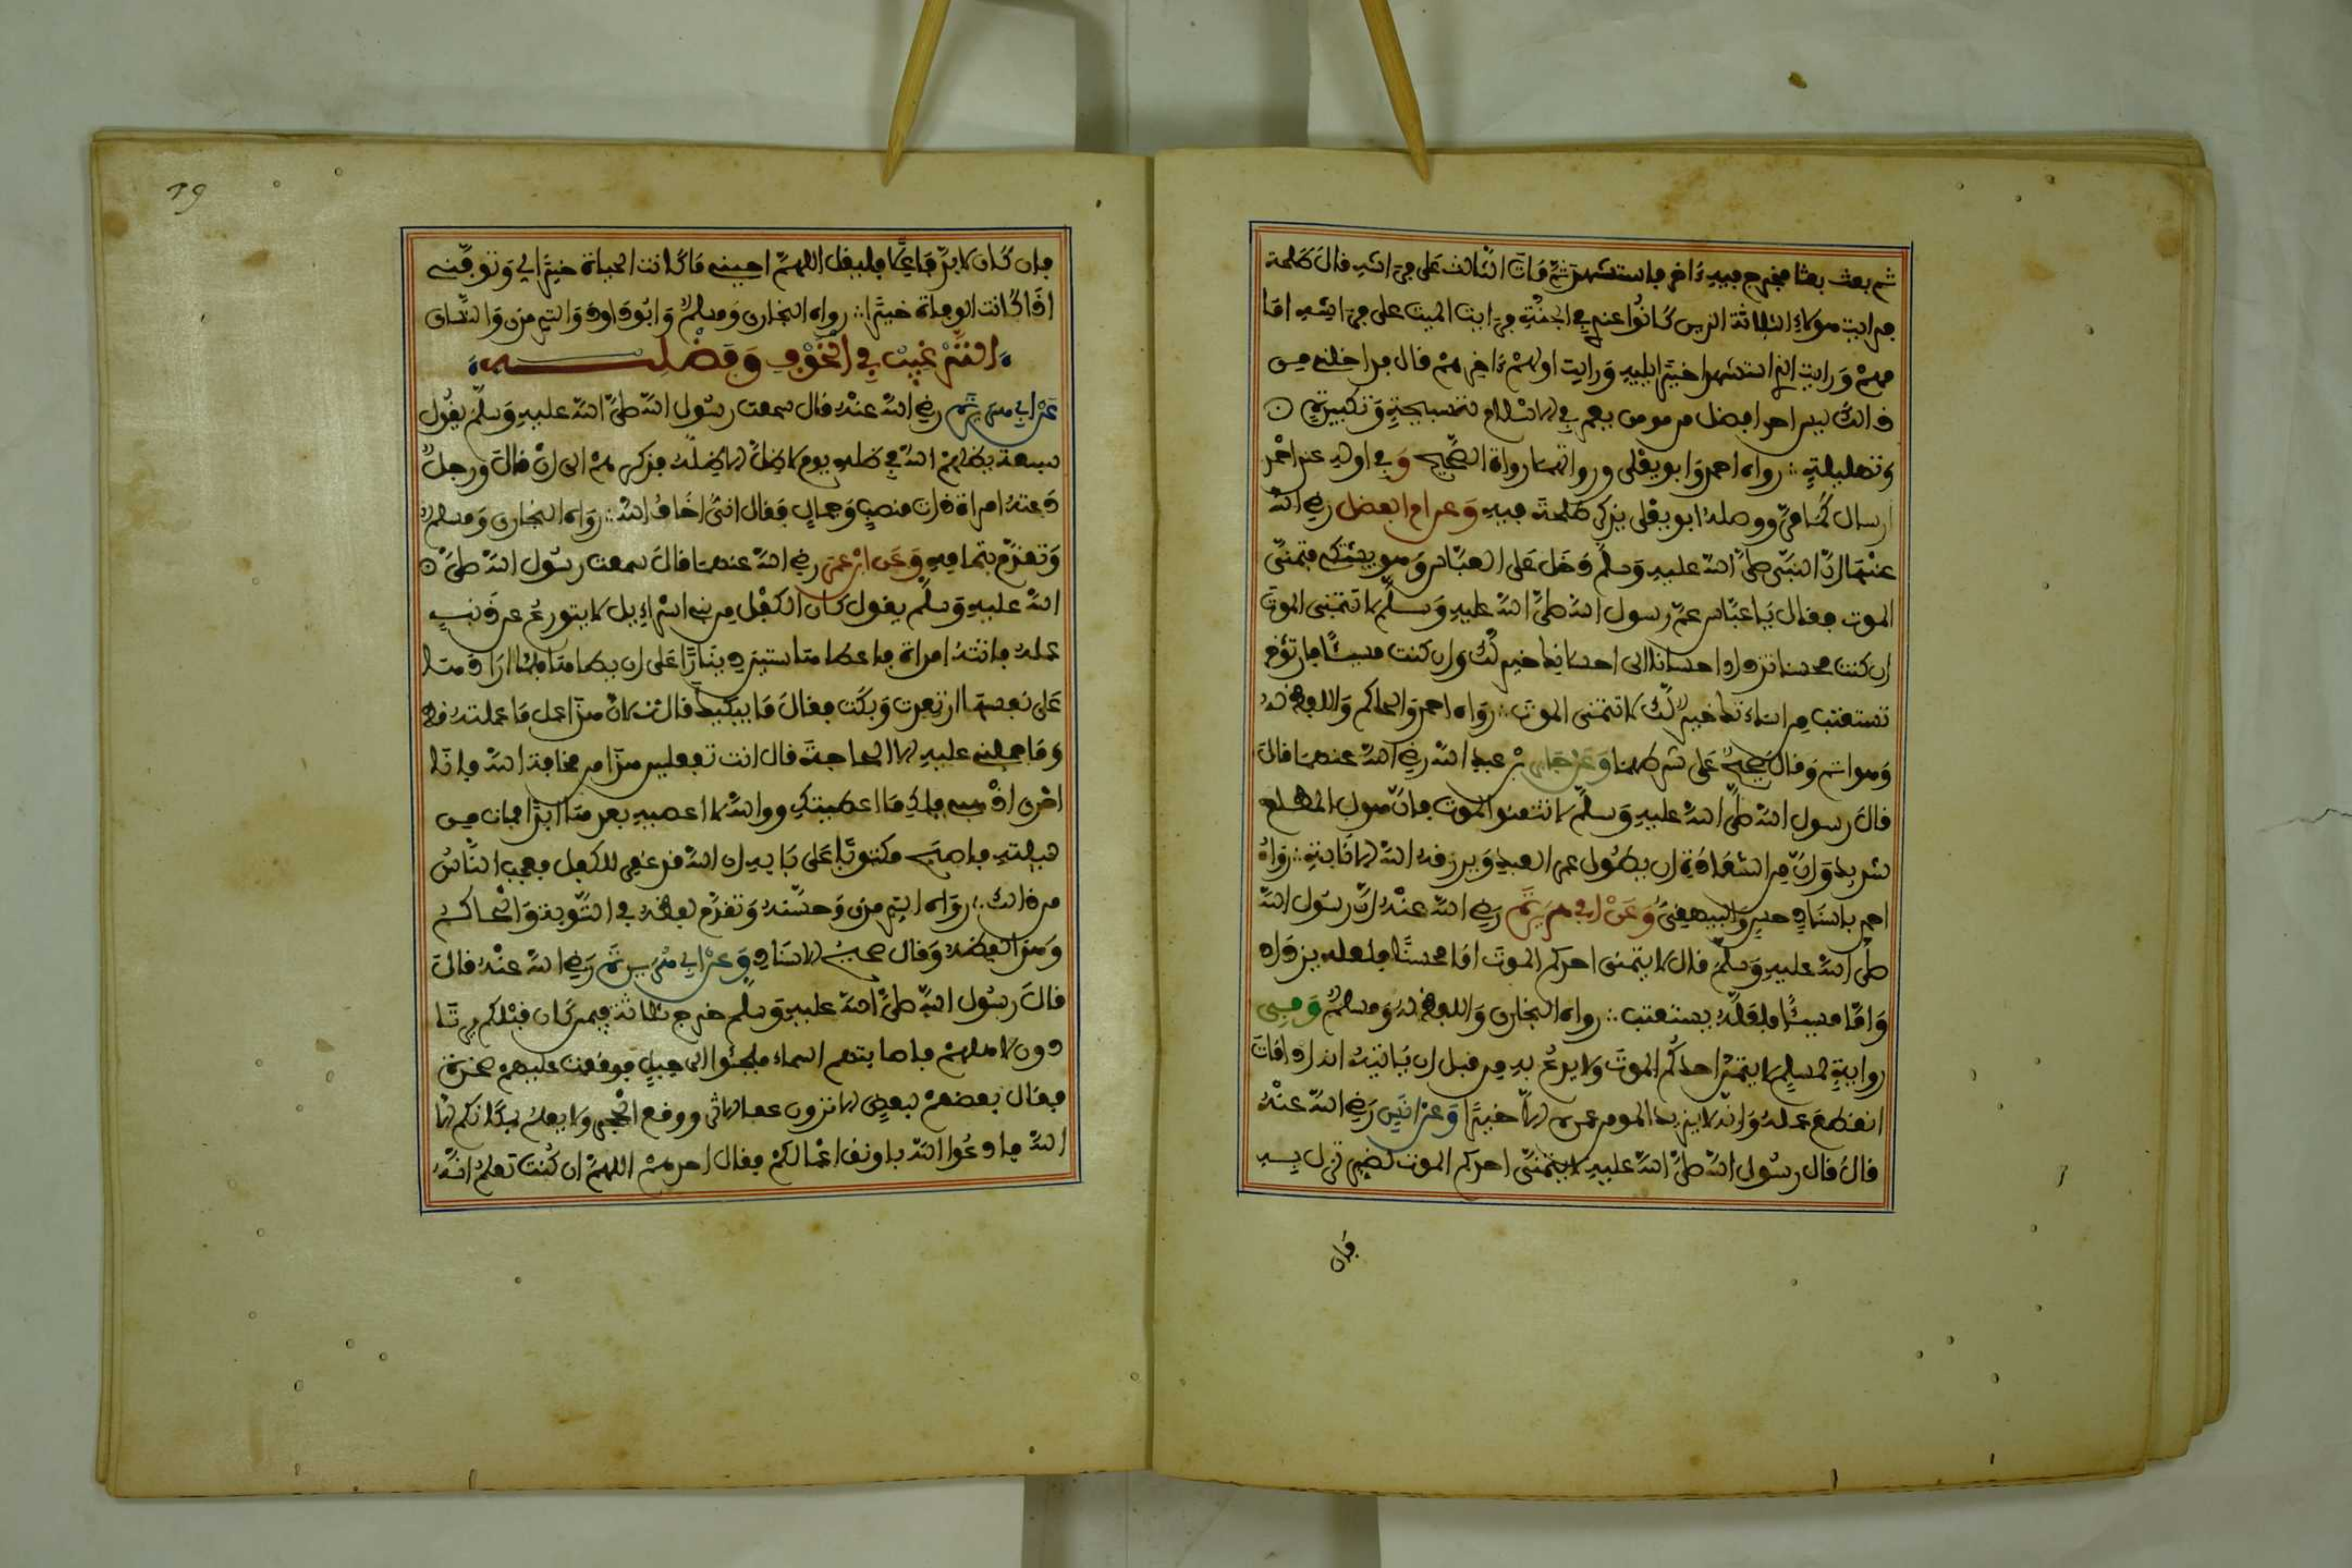 ثم بعث بعثا فخرج فيه ءاخر فاستشهد ثم مات الثالث على فراشه قال طلحة
فرايت هؤلاء الثلاثة الذين كانوا عندي في الجنة فرايت الميت على فراشه امامـ
ـهم ورايت الذي استشهد اخيرا يليه ورايت اولهم ءاخرهم قال فداخلني من
ذالك ليس احد افضل من مومن يعمر في الاسلام لتسبيحه وتكبيره
وتهليله رواه احمد وابو يعلى ورواتهما رواة الصحيح وفي اوله عند احمد
ارسال كما مر ووصله ابو يعلى بذكر طلحة فيه وعن ام الفضل رضي الله
عنها ان النبي صلى الله عليه وسلم دخل على العباس وهو يشتكي فتمنى
الموت فقال يا عباس عم رسول الله صلى الله عليه وسلم لا تتمنى الموت
ان كنت محسنا تزداد احسانا الى احسانك خير لك وان كنت مسيئا فان تؤخر
تستعتب من اساءتك خير لك لا تتمنى الموت رواه احمد والحاكم واللفظ له
وهو اتم وقال صحيح على شرطهما وعن جابر بن عبد الله رضي الله عنهما قال
قال رسول الله صلى الله عليه وسلم لا تتمنوا الموت فان هول المطلع
شديد وان من السعادة ان يطول عمر العبد ويرزقه الله الانابة رواه
احمد باسناد حسن والبيهقي وعن ابي هريرة رضي الله عنه ان رسول الله
صلى الله عليه وسلم قال لا يتمنى احدكم الموت اما محسنا فلعله يزداد
واما مسيئا فلعله يستعتب رواه البخاري واللفظ له ومسلم وفي
رواية لمسلم لا يتمنى احدكم الموت ولا يدع به من قبل ان ياتيه انه اذا مات
انقطع عمله وانه لا يزيد المومن عمره الا خيرا وعن انس رضي الله عنه
قال قال رسول الله صلى الله عليه لا يتمنى احدكم الموت لضر نزل به
فان
19
فان كان لا بد فاعلا فليقل اللهم احيني ما كانت الحياة خيرا لي وتوفني
اذا كانت الوفاة خيرا رواه البخاري ومسلم وابوداود والترمذي والنساي
الترغيب في الخوف وفضله
عن ابي هريرة رضي الله عنه قال سمعت رسول الله صلى الله عليه وسلم يقول
سبعة يظلهم الله في ظله يوم لا ظل الا ظله فذكرهم الى ان قال ورجل
دعته امراة ذات منصب وجمال فقال اني اخاف الله رواه البخاري ومسلم
وتقدم بتمامه وعن ابن عمر رضي الله عنهما قال سمعت رسول الله صلى
الله عليه وسلم يقول كان الكفل من بني اسراءيل لا يتورع عن ذنب
عمله فاتته امراة فاعطاها ستين دينارا على ان يطاها فلما ارادها
على نفسها ارتعدت وبكت فقال ما يبكيك قالت لان هذا عمل ما عملته قط
وما حملني عليه الا الحاجة قال انت تفعلين هذا من مخافة الله فانا
احرى اذهبي فلك ما اعطيتك ووالله لا اعصيه بعدها ابدا فمات من
ليلته فاصبح مكتوبا على بابه ان الله قد غفر للكفل فعجب الناس
من ذالك رواه الترمذي وحسنه وتقدم لفظه في التوبة والحاكم
وهذا لفظه وقال صحيح الاسناد وعن ابي هريرة رضي الله عنه قال
قال رسول الله صلى الله عليه وسلم خرج ثلاثة فيمن كان قبلكم يرتا
دون لاهلهم فاصابتهم السماء فلجئوا الى جبل فوقعت عليهم صخرة
فقال بعضهم لبعض الا تزون عفا الاثر ووقع الحجر ولا يعلم بمكانكم الا
الله فادعوا الله باوثق اعمالكم فقال احدهم اللهم ان كنت تعلم انه